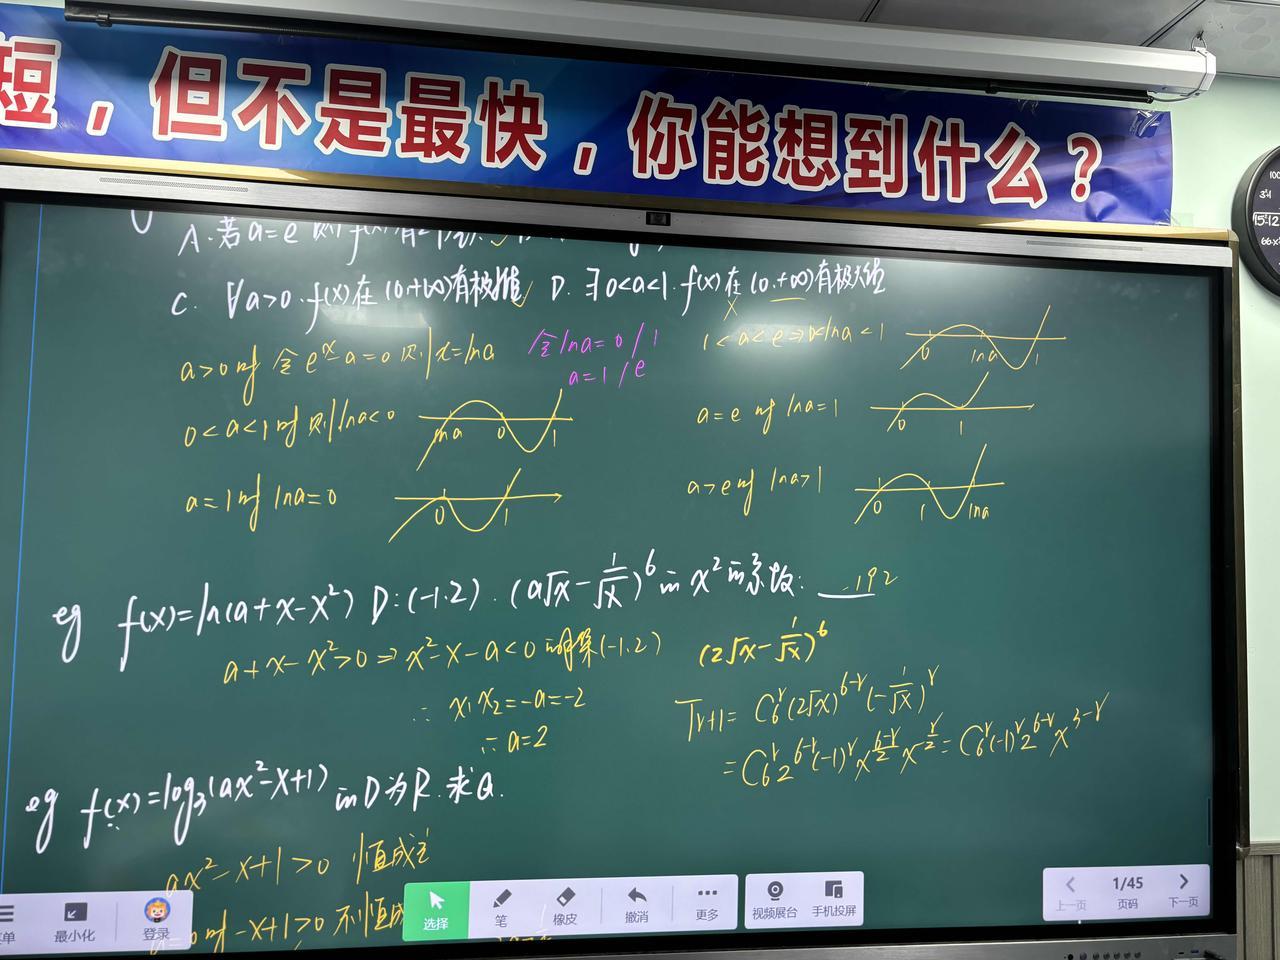 短，但不是最快，你能想到什么？
A.若a=e则f(x)有
C. ∀a>0.f(x)在(0,+∞)有极值✓ D.∃0<a<1.f(x)在(0.+∞)有极大值
a>0时 令eˣ-a=0则x=lna
令lna=0/1
a=1/e
1<a<e⇒0<lna<1
0 lna 1
0<a<1时则lna<0
lna 0 1
a=e时lna=1
0 1
a=1时lna=0
0 1
a>e时lna>1
0 1 lna
eg f(x)=ln(a+x-x²) D:(-1.2).(a√x-1/√x)⁶的x²的系数:-192
a+x-x²>0⇒x²-x-a<0的解集(-1.2)
∴ x₁x₂=-a=-2
∴a=2
(2√x-1/√x)⁶
Tr+1=C₆ʳ(2√x)⁶⁻ʳ(-1/√x)ʳ
=C₆ʳ2⁶⁻ʳ(-1)ʳx^(6-r)/2 x^-r/2=C₆ʳ(-1)ʳ2⁶⁻ʳx³⁻ʳ
eg f(x)=log₃(ax²-x+1)的D为R.求a.
ax²-x+1>0 恒成立
a=0时-x+1>0不恒成
最小化
登录
选择
笔
橡皮
撤消
更多
视频展台
手机投屏
上一页
1/45
页码
下一页